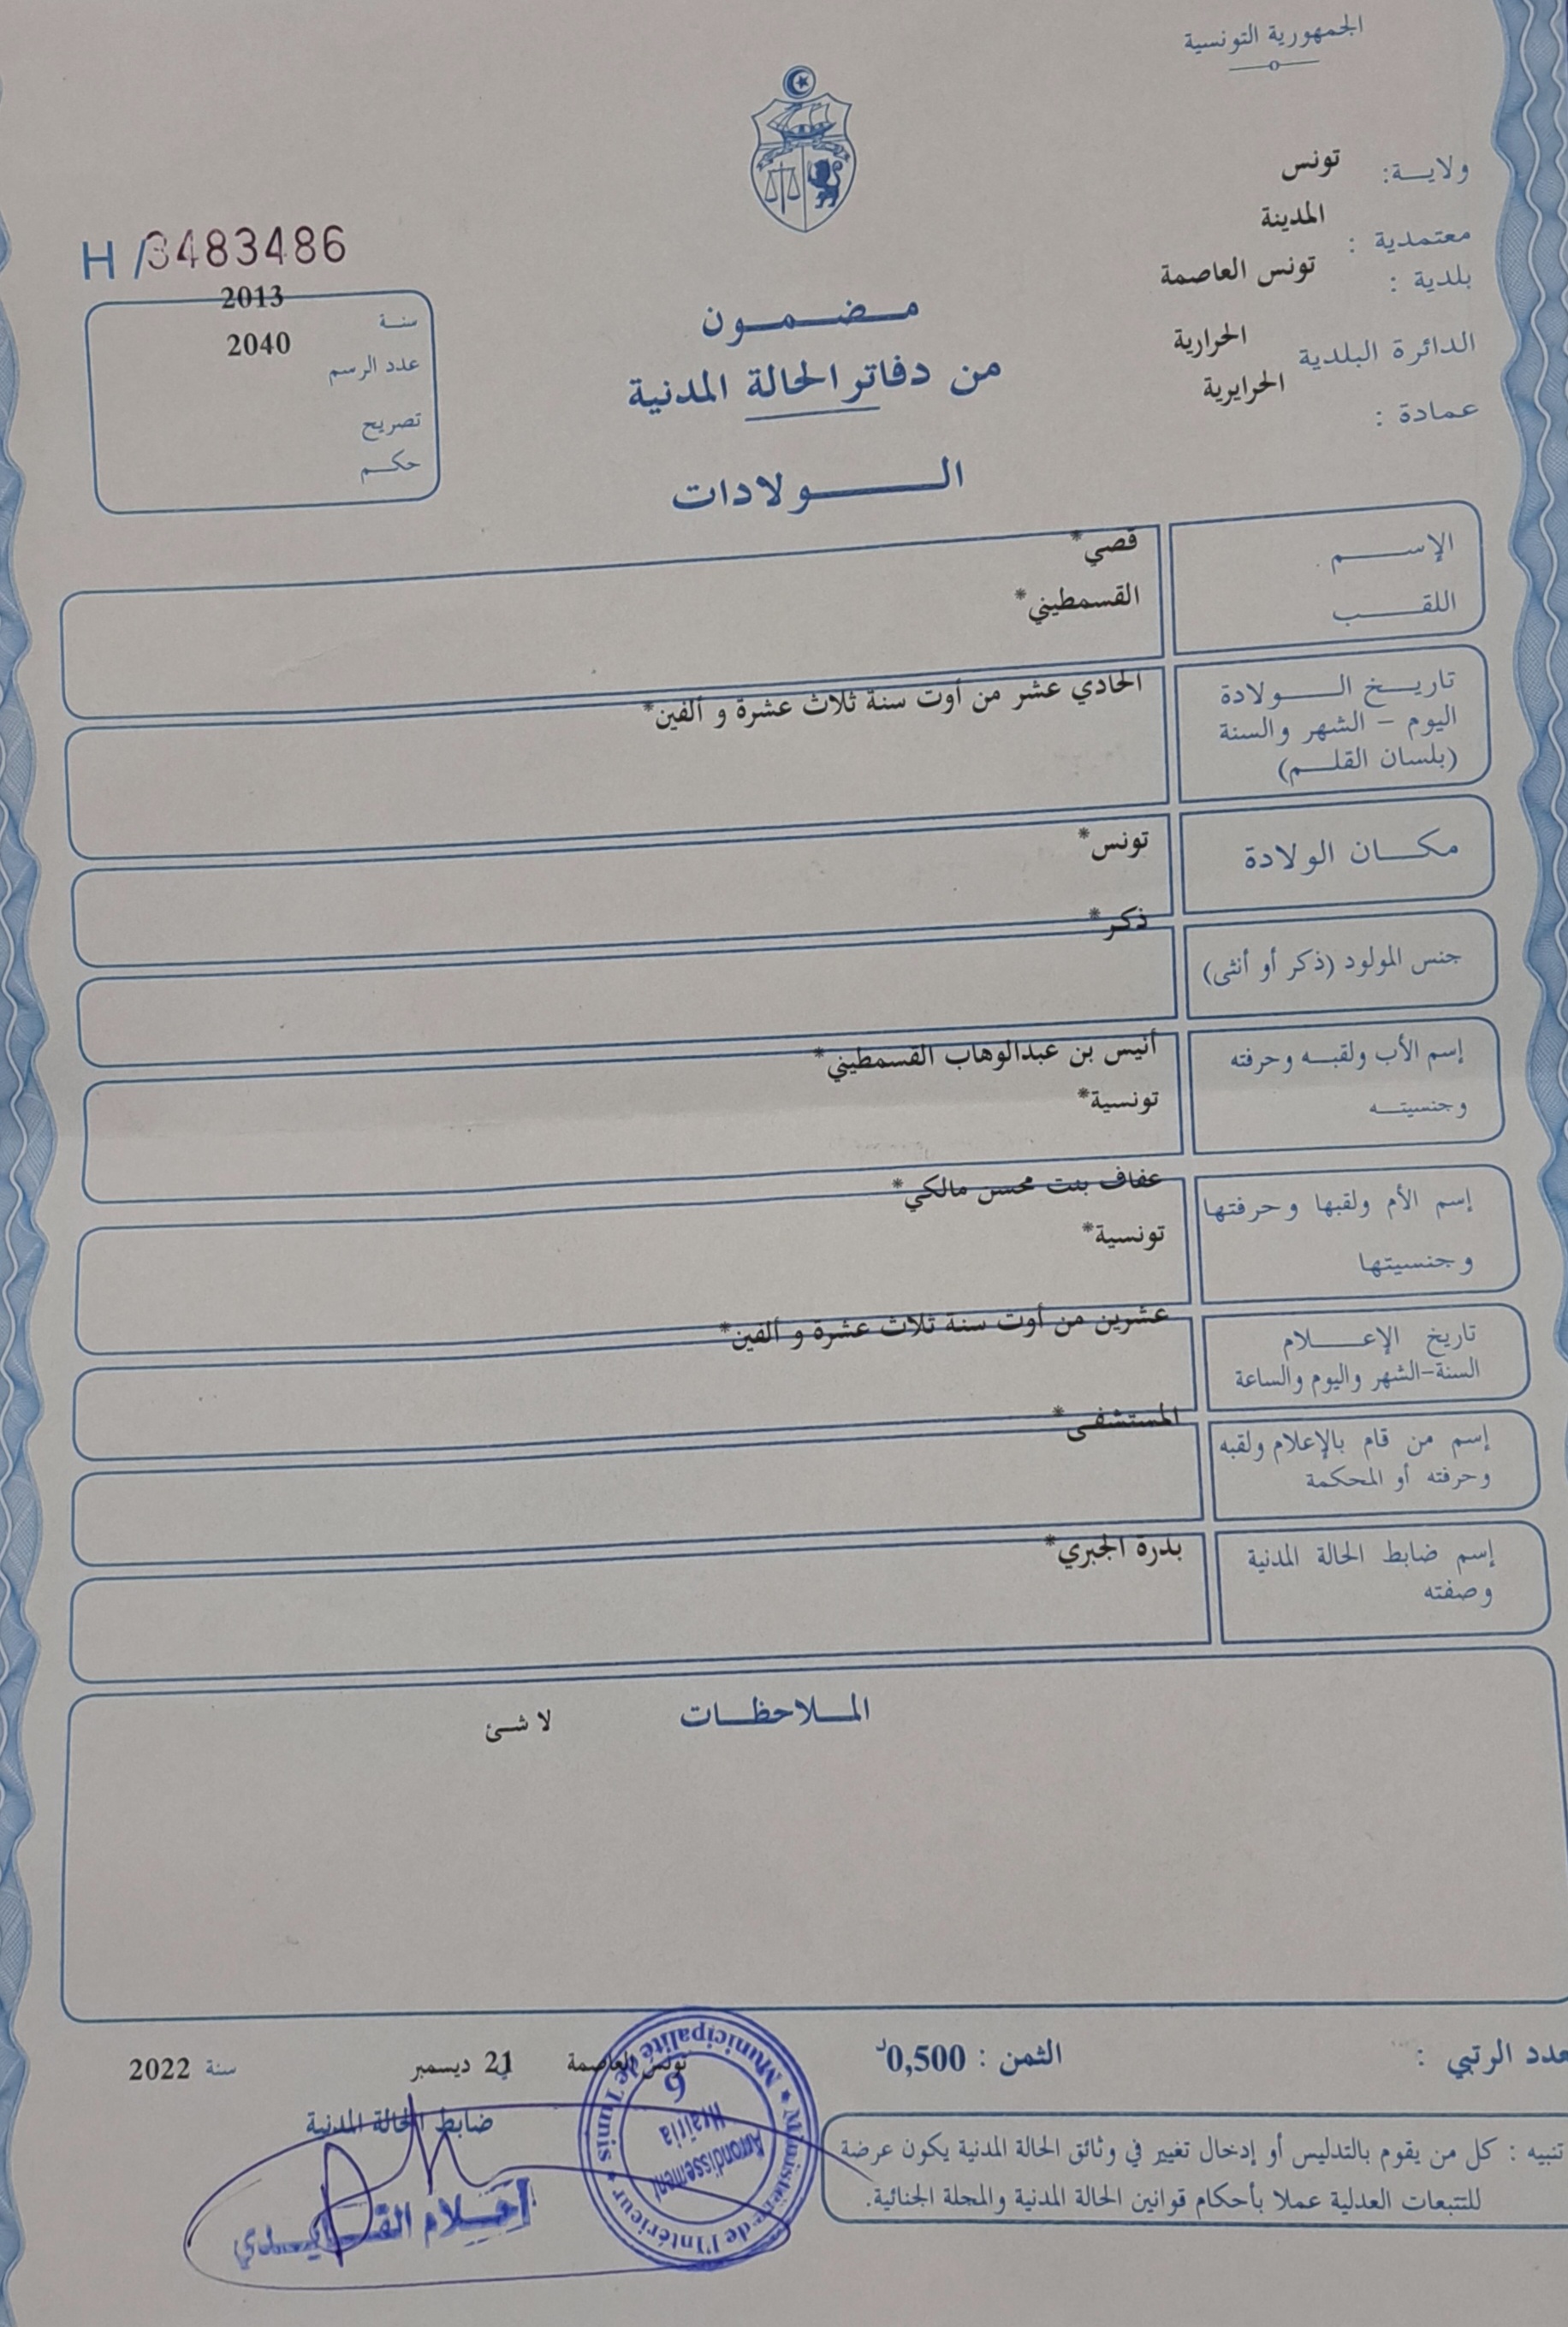 الجمهورية التونسية
ولايـــة: تونس
معتمدية : المدينة
بلدية : تونس العاصمة
الدائرة البلدية الحرارية
عمادة : الحرايرية
H/3483486
سنـة 2013
عدد الرسم 2040
تصريح
حكـــم
مـــضـــمـــون
من دفاتر الحالة المدنية
الـــــولادات
الإســـــم قصي*
اللقـــــب القسمطيني*
تاريـــخ الـــــولادة الحادي عشر من أوت سنة ثلاث عشرة و ألفين*
اليوم - الشهر والسنة
(بلسان القلـــم)
مكـــان الولادة تونس*
جنس المولود (ذكر أو أنثى) ذكر*
إسم الأب ولقبـــه وحرفته أنيس بن عبدالوهاب القسمطيني*
وجنسيتـــه تونسية*
إسم الأم ولقبها وحرفتها عفاف بنت محسن مالكي*
وجنسيتها تونسية*
تاريخ الإعـــــلام عشرين من أوت سنة ثلاث عشرة و ألفين*
السنة-الشهر واليوم والساعة
إسم من قام بالإعلام ولقبه المستشفى*
وحرفته أو المحكمة
إسم ضابط الحالة المدنية بدرة الجبري*
وصفته
المـــلاحظـــات لا شئ
عدد الرتبي :
الثمن : 0,500د
تونس العاصمة في 21 ديسمبر سنة 2022
ضابط الحالة المدنية
أحلام القـــايـــدي
Ministère de l'Intérieur * Municipalité de Tunis *
Arrondissement
Hrairia
6
تنبيه : كل من يقوم بالتدليس أو إدخال تغيير في وثائق الحالة المدنية يكون عرضة
للتتبعات العدلية عملا بأحكام قوانين الحالة المدنية والمجلة الجنائية.